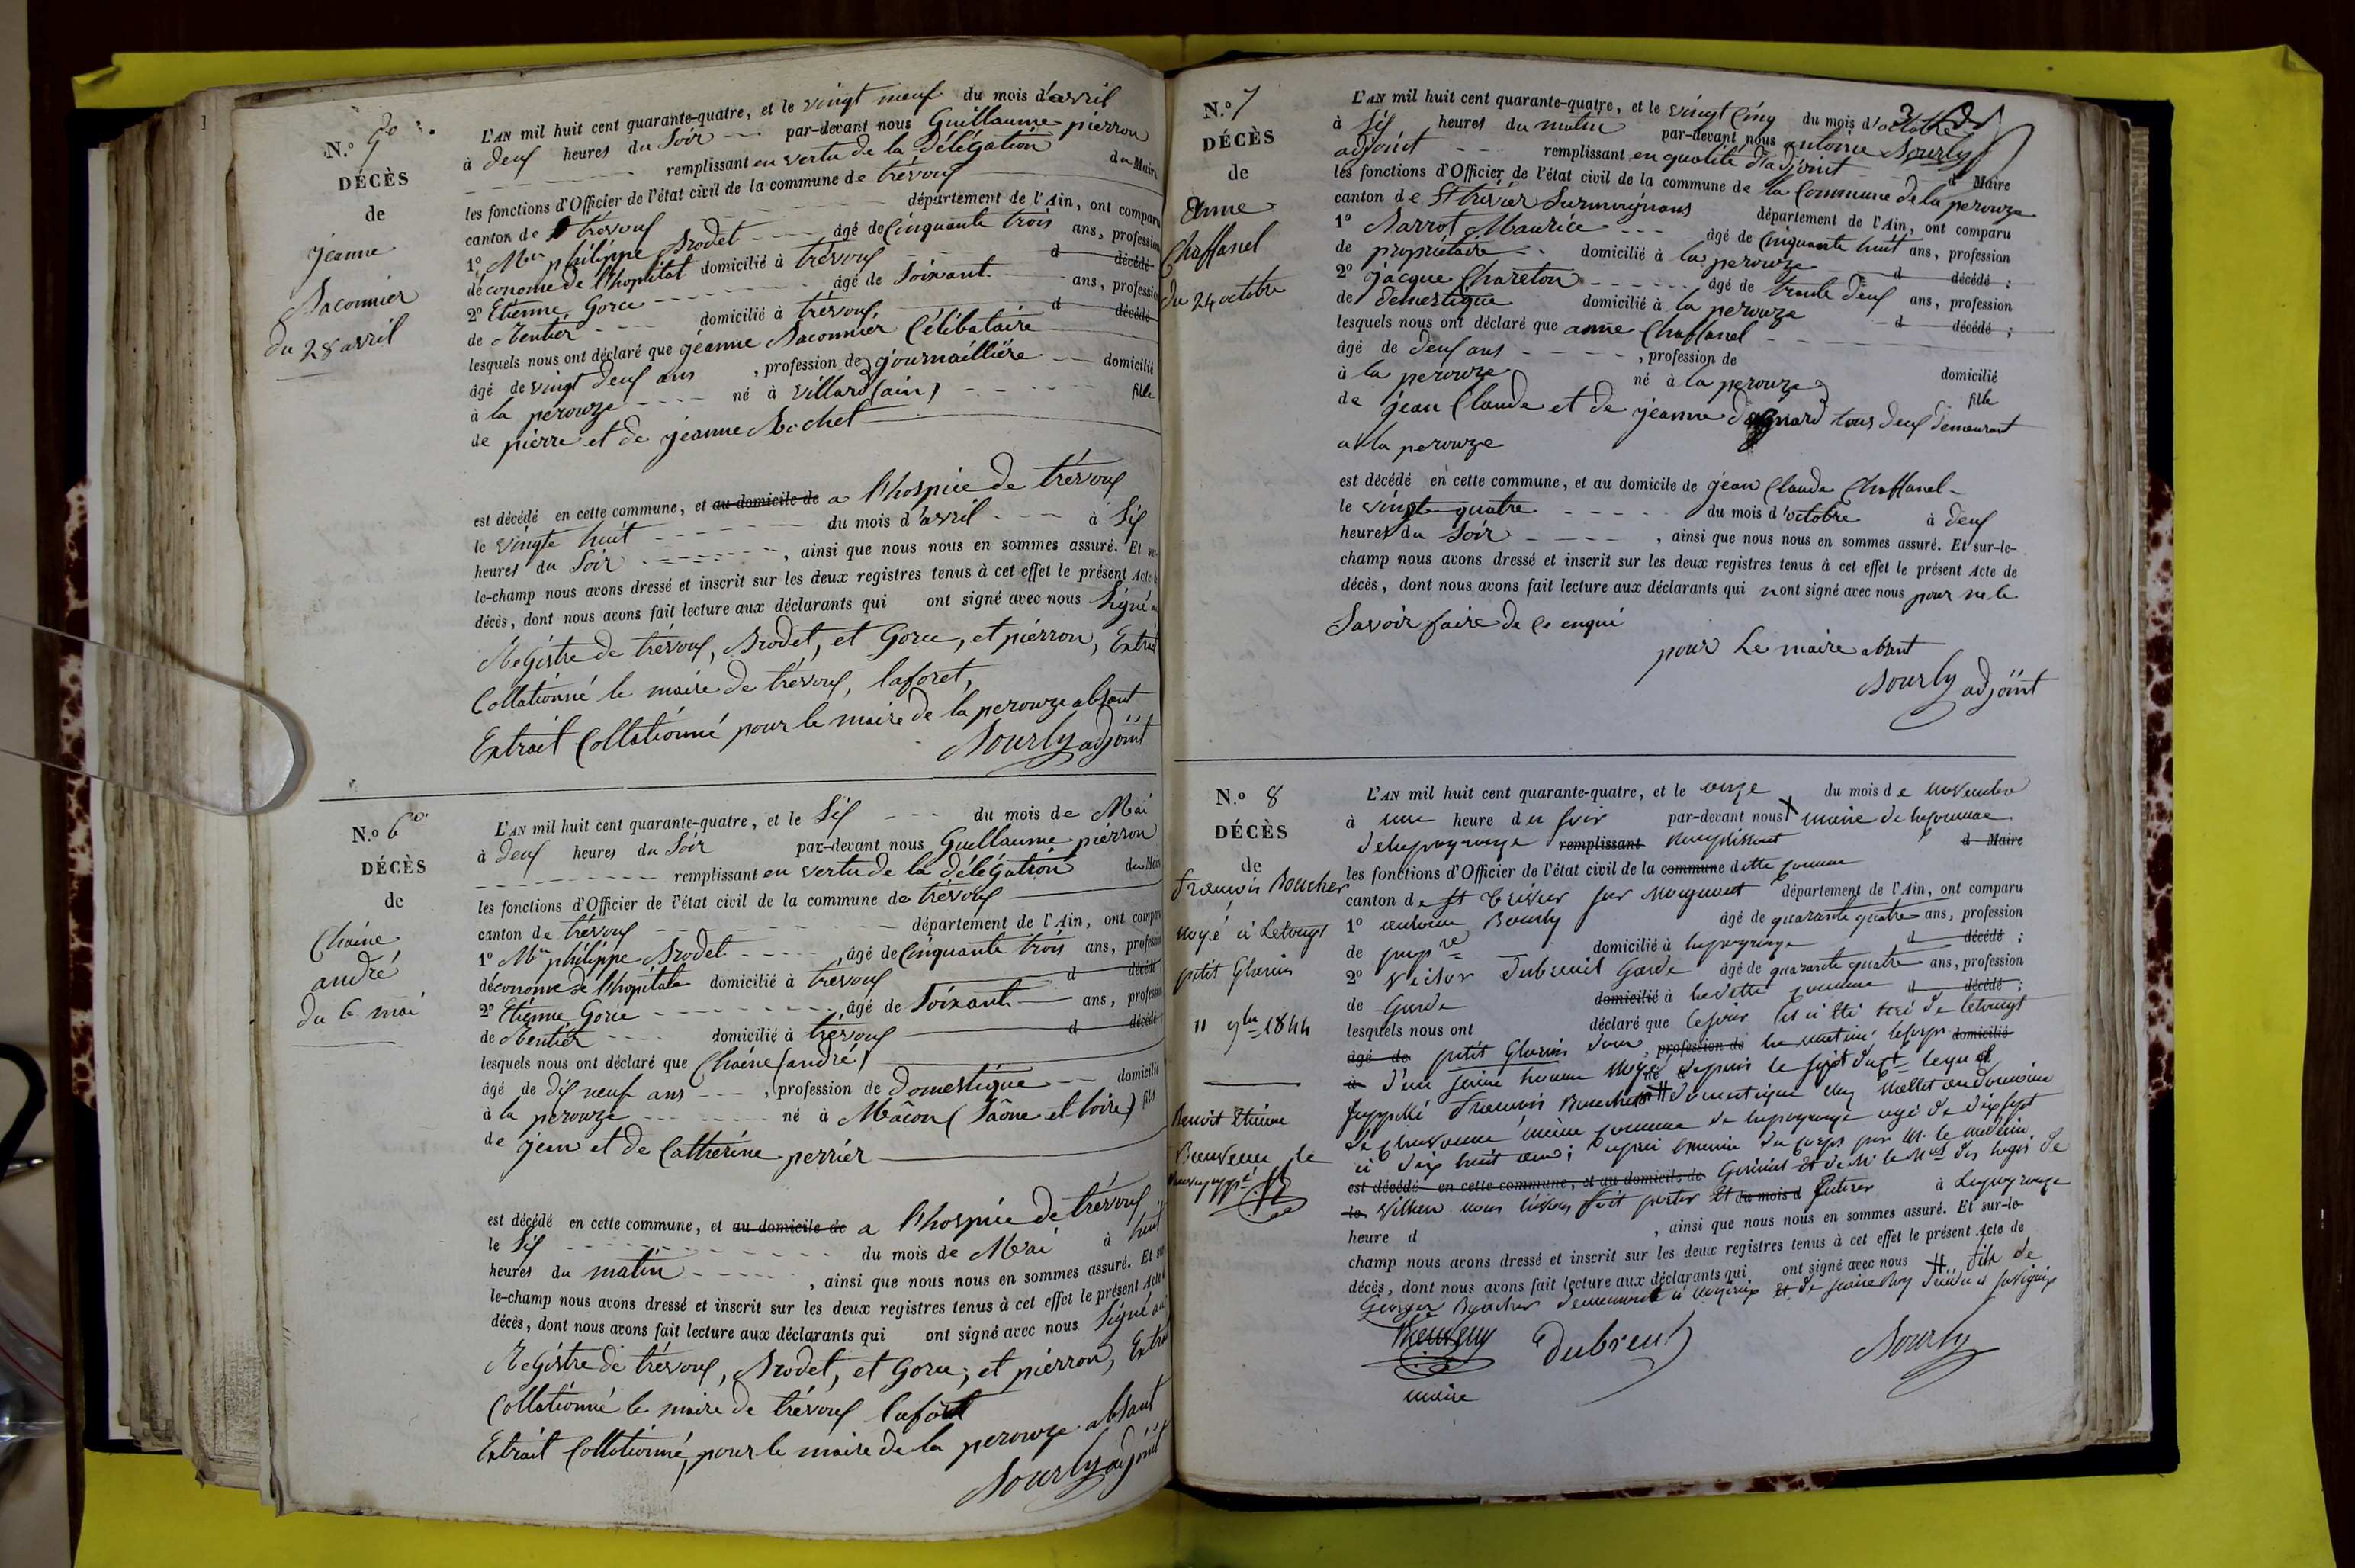 N.° 5e
DÉCÈS
de
jeanne
Saconnier
du 28 avril
L'AN mil huit cent quarante-quatre, et le vingt neuf du mois d'avril
à deux heures du Soir par-devant nous Guillaume pierron
remplissant en vertu de la délégation du Maire
les fonctions d'Officier de l'état civil de la commune de trévoux
canton de trévoux département de l'Ain, ont comparu
1° Mr philippe Brodet âgé de Cinquante trois ans, profession
d'économe de l'hopital domicilié à trévoux d décédé
2° Etienne Gorce âgé de Soixante ans, profession
de Rentier domicilié à trévoux d décédé
lesquels nous ont déclaré que jeanne Saconnier Célibataire
âgé de vingt deux ans , profession de journaillière domicilié
à la perouze né à villard (ain) fille
de pierre et de jeanne Bochet
est décédé en cette commune, et au domicile de a l'hospice de trévoux
le vingte huit du mois d'avril à Six
heures du Soir , ainsi que nous nous en sommes assuré. Et sur-
le-champ nous avons dressé et inscrit sur les deux registres tenus à cet effet le présent Acte de
décès, dont nous avons fait lecture aux déclarants qui ont signé avec nous Signé au
Régistre de trévoux, Brodet, et Gorce, et piérron, Extrait
Collationné le maire de trévoux, laforet,
Extrait Collationné pour le maire de la perouze absant
Bourly adjoint
N.° 6e
DÉCÈS
de
Chaine
andré
du 6 mai
L'AN mil huit cent quarante-quatre, et le Six du mois de Mai
à deux heures du Soir par-devant nous Guillaume pierron
remplissant en vertu de la délégation du Maire
les fonctions d'Officier de l'état civil de la commune de trévoux
canton de trévoux département de l'Ain, ont comparu
1° Mr philippe Brodet âgé de Cinquante trois ans, profession
d'économe de l'hopitale domicilié à trévoux d décédé
2° Etienne Gorce âgé de Soixante ans, profession
de Rentier domicilié à trévoux d décédé
lesquels nous ont déclaré que Chaine (andré)
âgé de dix neuf ans , profession de domestique domicilié
à la perouze né à Mâcon (Saône et loire) fils
de jean et de Catherine perrier
est décédé en cette commune, et au domicile de a l'hospice de trévoux
le Six du mois de Mai à huit
heures du matin , ainsi que nous nous en sommes assuré. Et sur-
le-champ nous avons dressé et inscrit sur les deux registres tenus à cet effet le présent Acte de
décès, dont nous avons fait lecture aux déclarants qui ont signé avec nous Signé au
Régistre de trévoux, Brodet, et Gorce, et piérron, Extrait
Collationné le maire de trévoux laforet
Extrait Collationné, pour le maire de la perouze absant
Bourly adjoint
N.° 7
DÉCÈS
de
Anne
Chaffanel
du 24 octobre
L'AN mil huit cent quarante-quatre, et le vingt Cinq du mois d'octobre
à Six heures du matin par-devant nous antoine Bourly
adjoint remplissant en qualité d'adjoint d Maire
les fonctions d'Officier de l'état civil de la commune de la Commune de la perouze
canton de St trivier Surmoignans département de l'Ain, ont comparu
1° Barrot Maurice âgé de Cinquante huit ans, profession
de propriétaire domicilié à la perouze d décédé ;
2° jacque Chareton âgé de trente deux ans, profession
de domestique domicilié à la perouze d décédé ;
lesquels nous ont déclaré que anne Chaffanel
âgé de deux ans , profession de domicilié
à la perouze né à la perouze fille
de jean Claude et de jeanne dagnard tous deux demeurant
a la perouze
est décédé en cette commune, et au domicile de jean Claude Chaffanel
le vingte quatre du mois d'octobre à deux
heures du Soir , ainsi que nous nous en sommes assuré. Et sur-le-
champ nous avons dressé et inscrit sur les deux registres tenus à cet effet le présent Acte de
décès, dont nous avons fait lecture aux déclarants qui nont signé avec nous pour ne le
Savoir faire de ce enqui
pour Le maire absent
Bourly adjoint
N.° 8
DÉCÈS
de
François Boucher
noyé à Letangt
petit Glarins
11 9bre 1844
Benoit Etienne
Bienvenu le
L'AN mil huit cent quarante-quatre, et le onze du mois de novembre
à une heure du soir par-devant nous X maire de la commune
de lapeyrouze remplissant remplissant d Maire
les fonctions d'Officier de l'état civil de la commune dette commune
canton de St Trivier sur Moignant département de l'Ain, ont comparu
1° antoine Bourly âgé de quarante quatre ans, profession
de propre domicilié à lapeyrouze d décédé ;
2° Victor Dubreuil Garde âgé de quarante quatre ans, profession
de Garde domicilié à la dette commune d décédé ;
lesquels nous ont déclaré que ce jour il a été tiré de letangt
âgé de petit Glarins dans profession de la matiné le corps domicilié
à d'un jeune homme noyé né depuis le sept du ct lequel
Suppellé François Boucher # domestique chez Mallet au domaine
de même commune de lapeyrouze agé de dix sept
à dix huit ans; après examen du corps par Mr le medecin
est décédé en cette commune, et au domicile de et de Mr le des logis de
le Villars nous l'avons fait porter et du mois d enterer à Lapeyrouze
heure d , ainsi que nous nous en sommes assuré. Et sur-le-
champ nous avons dressé et inscrit sur les deux registres tenus à cet effet le présent Acte de
décès, dont nous avons fait lecture aux déclarants qui ont signé avec nous # fils de
George Boucher demeurant à et de
Bienvenu Dubreuil Bourly
maire